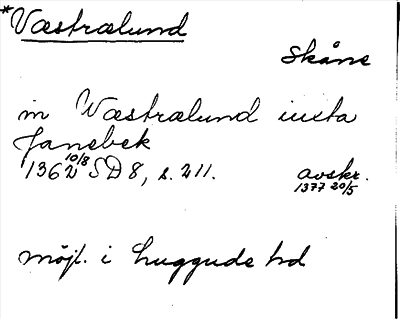 *Væstrælund
Skåne
in Wæstrælund iuxta
Janebek
1362 10/8 SD 8, s. 211. avskr.
1377 20/5
möjl. i Luggude hd